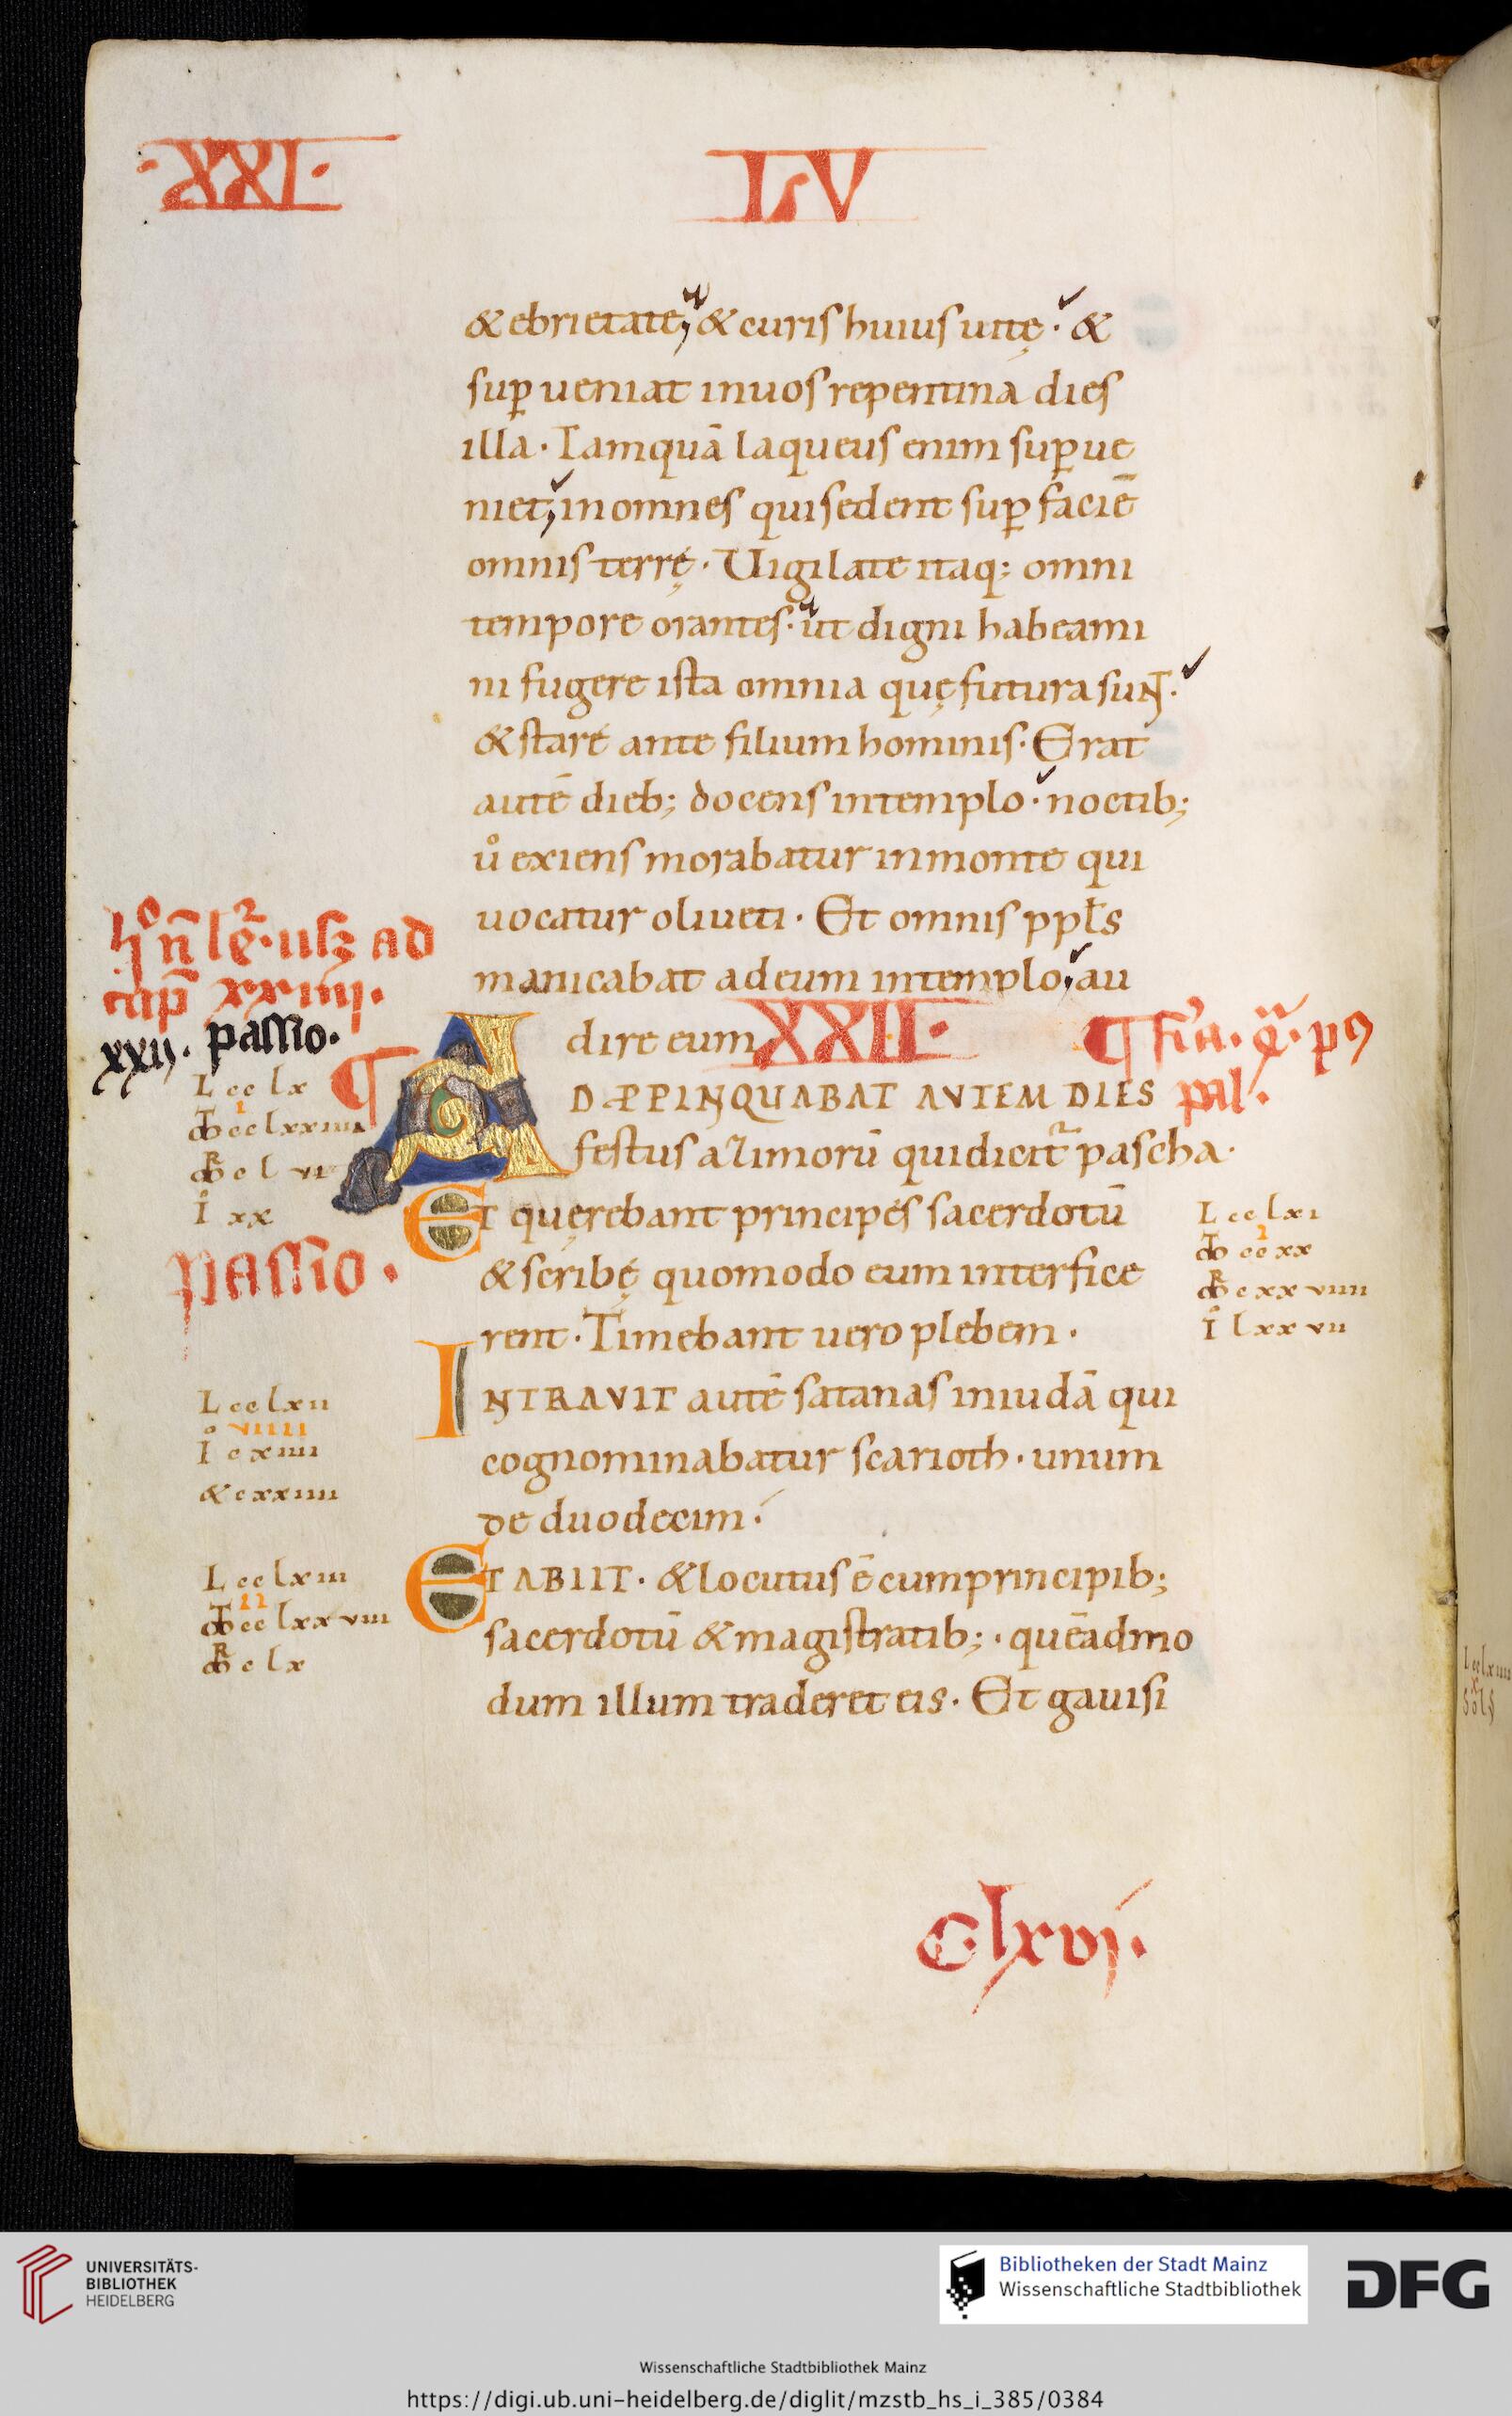 ·XXI·
LV
& ebrietate, & curis huius uitę · &
sup̱ ueniat in uos repentina dies
illa · Tamquā laqueus enim sup̱ ue
niet, in omnes qui sedent sup̱ faciē
omnis terrę · Uigilate itaq; omni
tempore orantes · ut digni habeami
ni fugere ista omnia quę futura sunt ·
& stare ante filium hominis · Erat
autē dieb; docens in templo · noctib;
uͦ exiens morabatur in monte qui
uocatur oliueti · Et omnis ppłs
manicabat ad eum in templo, au
dire eum XXII·
AD PPINQUABAT AVTEM DIES
festus azimorū qui dicit᷑ pascha ·
Et quęrebant principes sacerdotū
& scribę quomodo eum interfice
rent · Timebant uero plebem ·
INTRAVIT autē satanas in iudā qui
cognominabatur scarioth · unum
de duodecim ·
ET ABIIT · & locutus ē cum principib;
sacerdotū & magistratib; · quēadmo
dum illum traderet eis · Et gauisi
ad
cap̄ xxiiij.
xxij. passio.
L cclx
I
cclxxiiii
cl vi
I xx
passio.
L cclxi
I
ccxx
cxxviiii
I lxxvii
L cclxii
viiii
I cxiiii
& cxxiiii
L cclxiii
II
cclxxviii
clx
Clxvj.
UNIVERSITÄTS-
BIBLIOTHEK
HEIDELBERG
Bibliotheken der Stadt Mainz
Wissenschaftliche Stadtbibliothek
DFG
Wissenschaftliche Stadtbibliothek Mainz
https://digi.ub.uni-heidelberg.de/diglit/mzstb_hs_i_385/0384